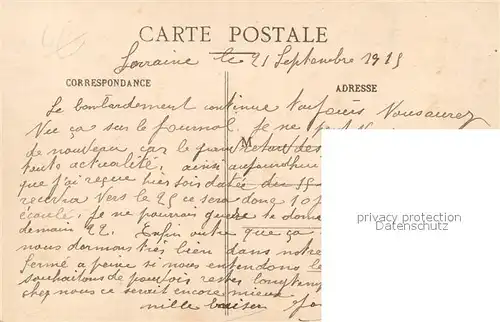 CARTE POSTALE
Lorraine le 21 Septembre 1915
CORRESPONDANCE
ADRESSE
Le bombardement continue toujours Vous aurez
Vu ça sur le journal. Je ne
de nouveau car le
M
toute actualité. ainsi aujourd'hui
que j'ai reçue hier soir datée du 15
recevra Vers le 25 ce sera donc 10
écoulé. Je ne pourrais guère te
demain 22. Enfin outre que ça
nous dormons très bien dans notre
fermé a peine si nous entendons le
souhaitons de pouvoir rester longtemps
chez nous ce serait encore mieux
mille baisers
privacy protection
watermark